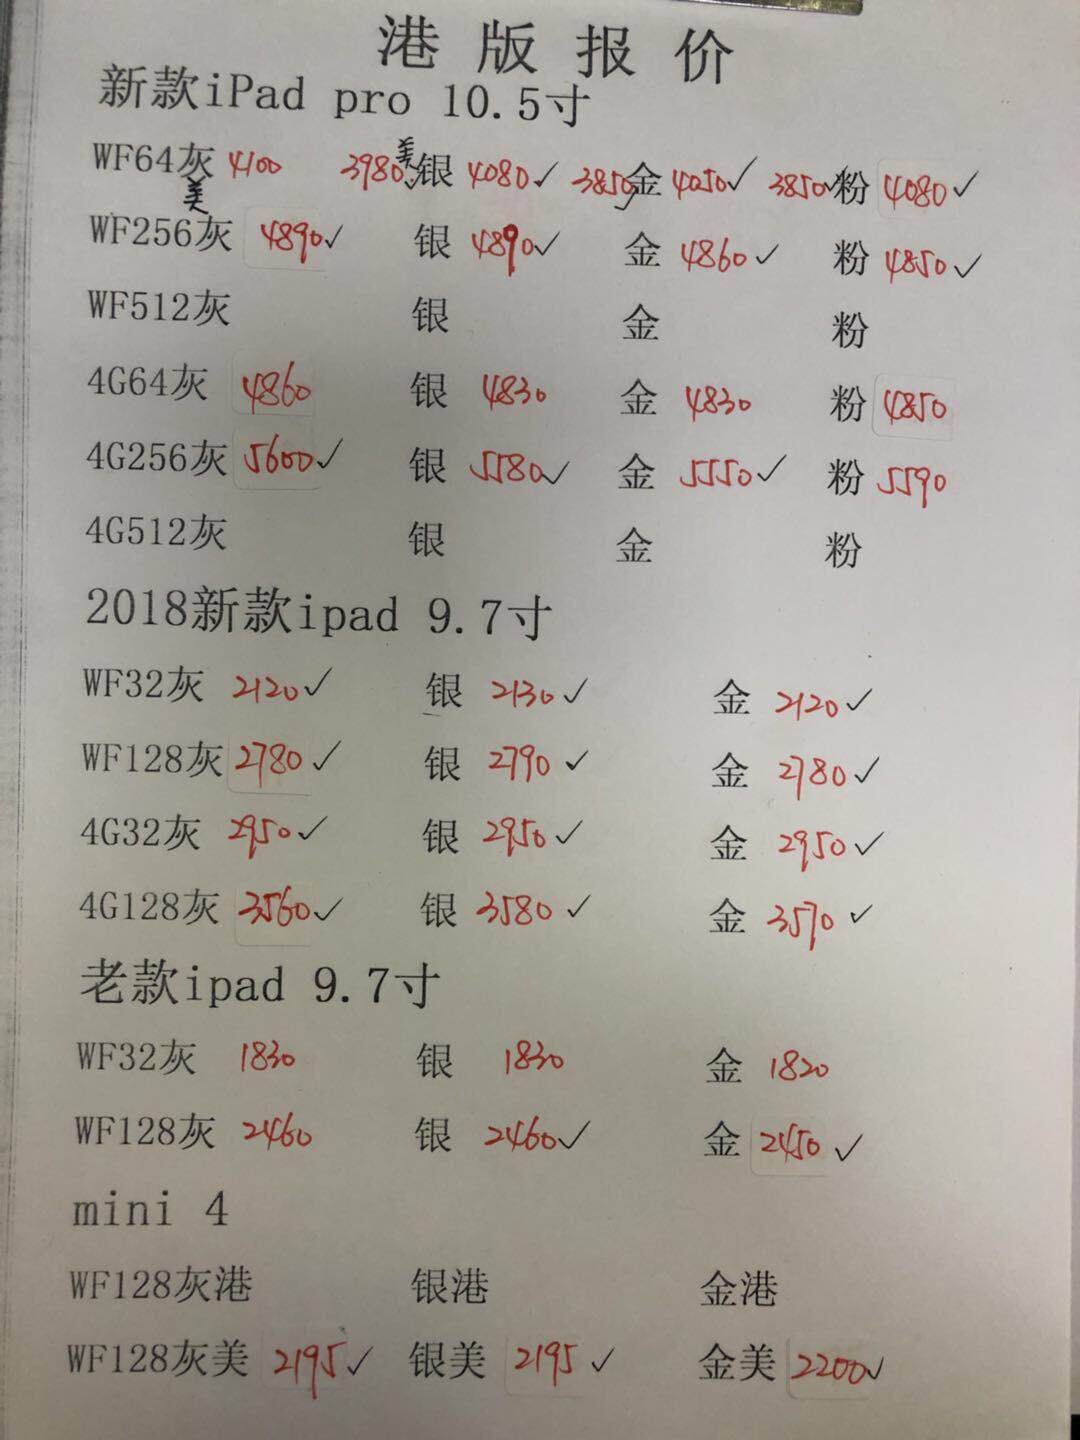 港版报价
新款iPad pro 10.5寸
WF64灰 4100 3980美✓ 银 4080✓ 3850✓ 金 4050✓ 3850✓ 粉 4080✓
美
WF256灰 4890✓ 银 4890✓ 金 4860✓ 粉 4850✓
WF512灰 银 金 粉
4G64灰 4860 银 4830 金 4830 粉 4850
4G256灰 5600✓ 银 5580✓ 金 5550✓ 粉 5590
4G512灰 银 金 粉
2018新款ipad 9.7寸
WF32灰 2120✓ 银 2130✓ 金 2120✓
WF128灰 2780✓ 银 2790✓ 金 2780✓
4G32灰 2950✓ 银 2950✓ 金 2950✓
4G128灰 3560✓ 银 3580✓ 金 3570✓
老款ipad 9.7寸
WF32灰 1830 银 1830 金 1820
WF128灰 2460 银 2460✓ 金 2450✓
mini 4
WF128灰港 银港 金港
WF128灰美 2195✓ 银美 2195✓ 金美 2200✓